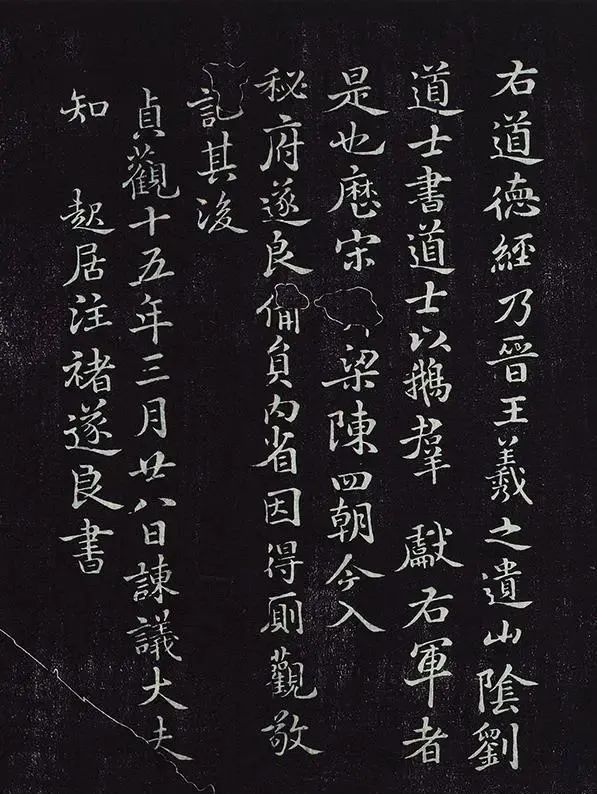 右道德經乃晉王羲之遺山陰劉
道士書道士以鵝羣 獻右軍者
是也歷宋 梁陳四朝今入
秘府遂良備員內省因得厠觀敬
記其後
貞觀十五年三月廿八日諫議大夫
知 起居注褚遂良書